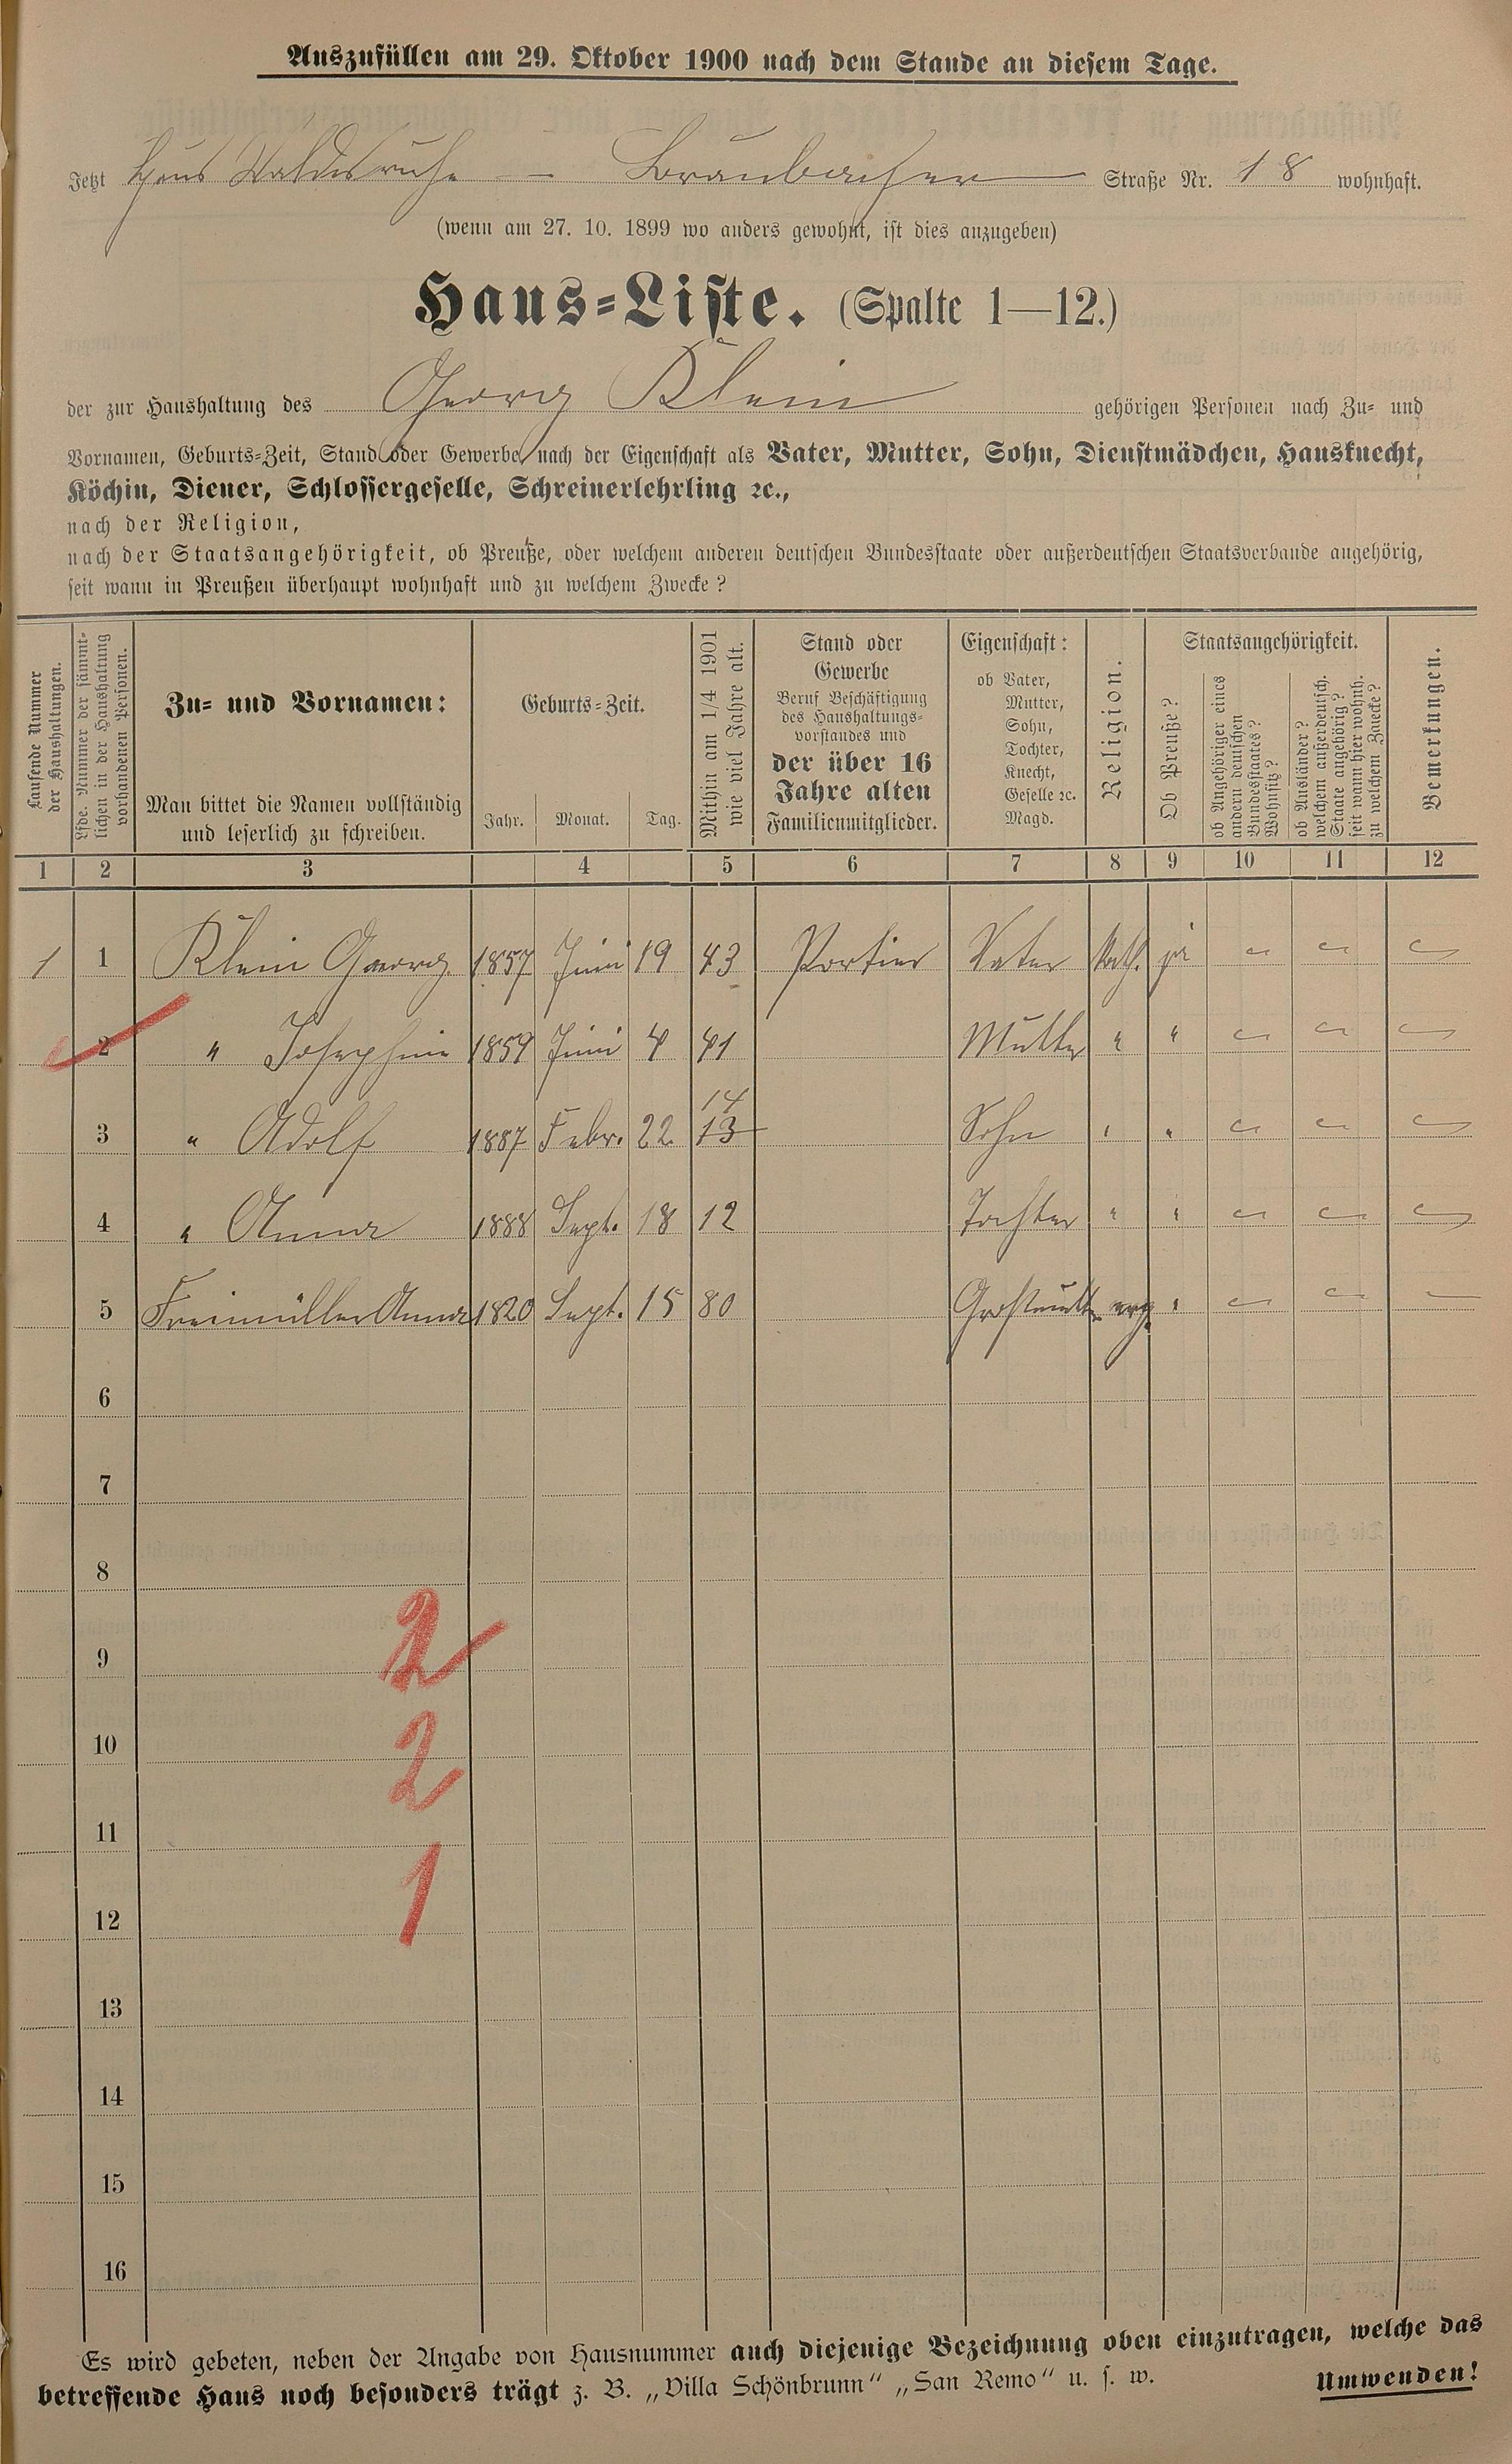 Auszufüllen am 29. Oktober 1900 nach dem Stande an diesem Tage.
Jetzt Haus Waldesruhe – Braubacher Straße Nr. 18 wohnhaft.
(wenn am 27. 10. 1899 wo anders gewohnt, ist dies anzugeben)
Haus=Liste. (Spalte 1—12.)
der zur Haushaltung des Georg Klein gehörigen Personen nach Zu= und
Vornamen, Geburts=Zeit, Stand oder Gewerbe, nach der Eigenschaft als Vater, Mutter, Sohn, Dienstmädchen, Hausknecht,
Köchin, Diener, Schlossergeselle, Schreinerlehrling ꝛc.,
nach der Religion,
nach der Staatsangehörigkeit, ob Preuße, oder welchem anderen deutschen Bundesstaate oder außerdeutschen Staatsverbande angehörig,
seit wann in Preußen überhaupt wohnhaft und zu welchem Zwecke?
Laufende Nummer
der Haushaltungen.
Lfde. Nummer der sämmt=
lichen in der Haushaltung
vorhandenen Personen.
Zu= und Vornamen:
Man bittet die Namen vollständig
und leserlich zu schreiben.
Geburts=Zeit.
Jahr. Monat. Tag.
Mithin am 1/4 1901
wie viel Jahre alt.
Stand oder
Gewerbe
Beruf Beschäftigung
des Haushaltungs=
vorstandes und
der über 16
Jahre alten
Familienmitglieder.
Eigenschaft:
ob Vater,
Mutter,
Sohn,
Tochter,
Knecht,
Geselle ꝛc.
Magd.
Religion.
Staatsangehörigkeit.
Ob Preuße?
ob Angehöriger eines
andern deutschen
Bundesstaates?
Wohnsitz?
ob Ausländer?
welchem außerdeutsch.
Staate angehörig?
seit wann hier wohnh.
zu welchem Zwecke?
Bemerkungen.
1 2 3 4 5 6 7 8 9 10 11 12
1 1 Klein Georg 1857 Juni 19 43 Portier Vater kath. ja
2 " Josephine 1859 Juni 4 41 Mutter " "
14
3 " Adolf 1887 Febr. 22. 13 Sohn " "
4 " Anna 1888 Sept. 18 12 Tochter " "
5 Freimüller Anna 1820 Sept. 15 80 Großmutt. evg. "
6
7
8
9 2
10 2
11
12 1
13
14
15
16
Es wird gebeten, neben der Angabe von Hausnummer auch diejenige Bezeichnung oben einzutragen, welche das
betreffende Haus noch besonders trägt z. B. „Villa Schönbrunn" „San Remo" u. s. w.
Umwenden!